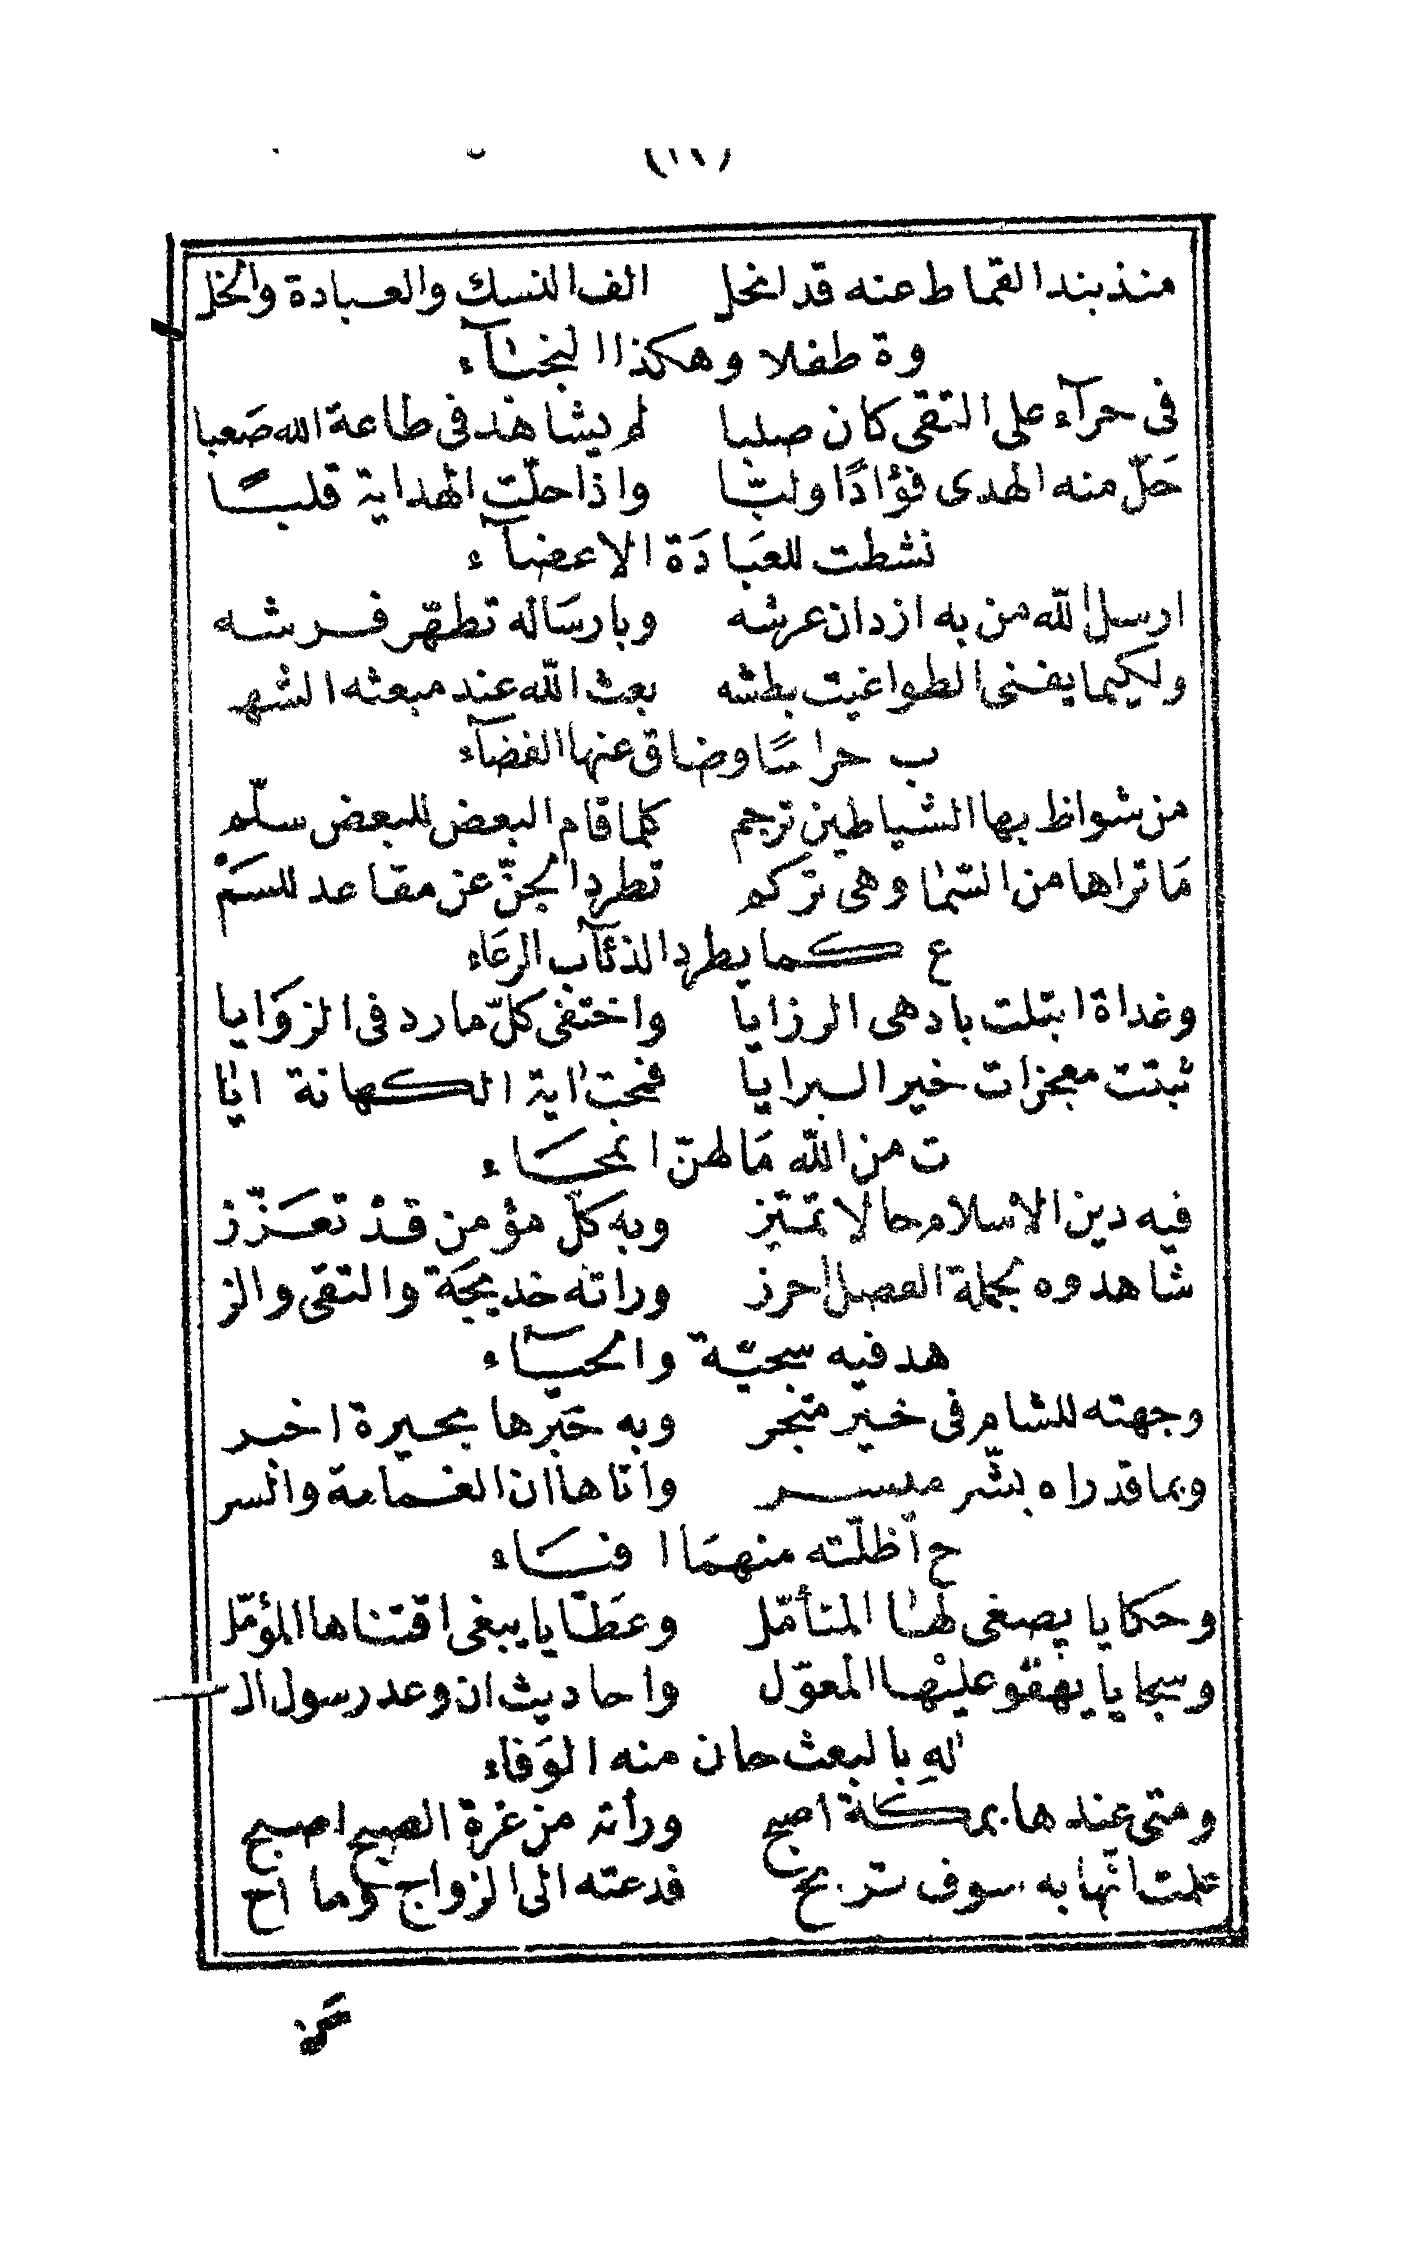 منذ بند القماط عنه قد انحل الف النسك والعبادة والخل
وة طفلا وهكذا النجبآء
فى حرآء على التقى كان صلبا لم يشاهد فى طاعة الله صَعبا
حَلّ منه الهدى فؤادًا ولبّا واذا حلّت الهداية قلبًا
نشطت للعبَادَة الاعضآء
ارسل الله من به ازدان عرشه وبارسَاله تطهّر فرشه
ولكيما يفنى الطواغيت بطشه بعث الله عند مبعثه الشه
ب حراسًا وضاق عنها الفضآء
من شواظ بها الشياطين ترجم كلما قام البعض للبعض سلّم
مَا تراها من السّما وهى تركم تطرد الجنّ عن مقاعد للسمْ
ع كما يطرد الذئآب الرعَاء
وغداة ابتلت بادهى الرزايا واختفى كلّ مارد فى الزوَايا
ثبتت معجزات خير البرايا فمحت اية الكهانة ايا
ت من الله مَا لهنّ انمحَاء
فيه دين الاسلام حالا تميّز وبه كلّ مؤمن قدْ تعَزّز
شاهدوه بجملة الفضل احرز وراته خديجَة والتقى والز
هد فيه سجيّة والحيَآء
وجهته للشام فى خير متجر وبه حَبّرها بحيرة اخبر
وبما قد راه بشّر ميسر واتاها ان الغمامة والسر
ح اظلّته منهمَا افيَاء
وحكايا يصغى لها المتأمّل وعَطَايا يبغى اقتناها المؤمّل
وسجايا يهفو عليْها المعوّل واحاديث ان وعد رسول ال
لهِ بالبعث حان منه الوَفاء
ومتى عندها بمكة اصبح ورأته من غرة الصبح اصبح
علمت انّها به سوف تربح فدعته الى الزواج وما اح